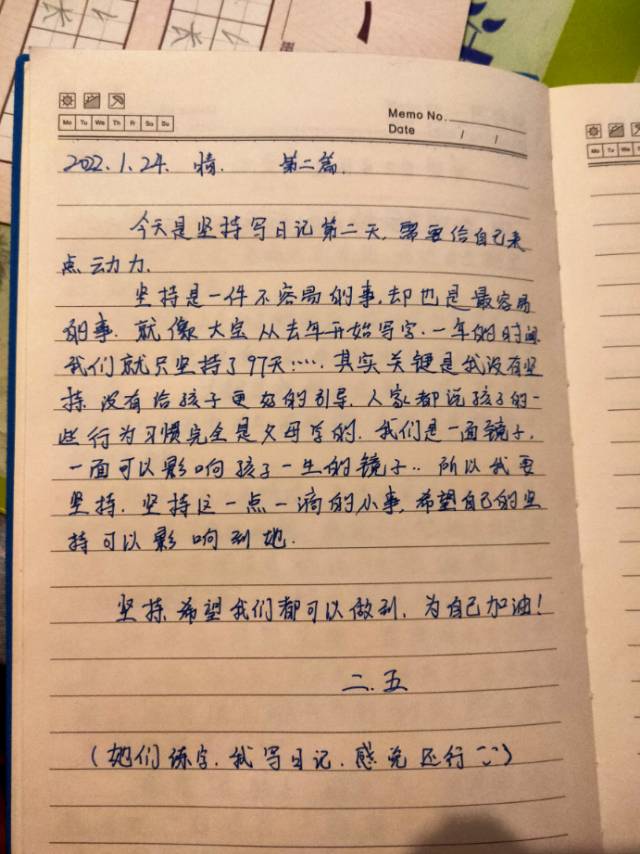 Memo No.
Mo Tu We Th Fr Sa Su
Date / /
2022.1.24. 晴. 第二篇.
今天是坚持写日记第二天,需要给自己来
点动力.
坚持是一件不容易的事,却也是最容易
的事.就像大宝从去年开始写字.一年的时间
我们就只坚持了97天……其实关键是我没有坚
持.没有给孩子更好的引导.人家都说孩子的一
些行为习惯完全是父母给的.我们是一面镜子.
一面可以影响孩子一生的镜子..所以我要
坚持.坚持这一点一滴的小事,希望自己的坚
持可以影响到她.
坚持希望我们都可以做到.为自己加油!
二.五
(她们练字.我写日记.感觉还行 )